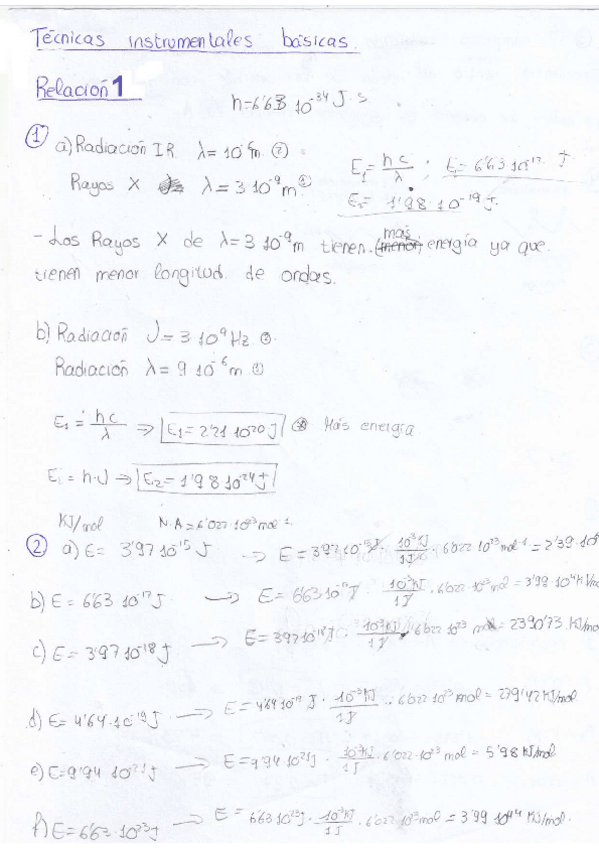 Técnicas instrumentales básicas.
Relación 1
h=6'63 10^-34 J·s
① a) Radiación IR λ= 10^-6 m ②
E₁ = hc/λ ; E₁= 6'63 10^-17 J
Rayos X λ = 3 10^-9 m ①
E₂ = 1'98·10^-19 J.
- Los Rayos X de λ=3 10^-9 m tienen más (menor) energía ya que
tienen menor longitud de ondas.
b) Radiación ν = 3·10^9 Hz ②
Radiación λ = 9 10^-6 m ①
E₁ = hc/λ ⇒ E₁= 2'21 10^-20 J Más energía
E = h·ν ⇒ E₂= 1'98 10^-24 J
KJ/mol N.A = 6'022·10^23 mol^-1
② a) E= 3'97 10^-15 J → E = 3'97 10^-15 J · 10^-3 KJ/1J · 6'022 10^23 mol^-1 = 2'39·10
b) E = 6'63 10^-17 J → E = 6'63 10^-17 J · 10^-3 KJ/1J · 6'022 10^23 mol = 3'99·10^4 KJ/mol
c) E= 3'97 10^-18 J → E = 3'97 10^-18 J · 10^-3 KJ/1J · 6'022 10^23 mol = 2390'73 KJ/mol
d) E= 4'64·10^-19 J → E = 4'64 10^-19 J · 10^-3 KJ/1J · 6'022 10^23 mol = 279'42 KJ/mol
e) E=9'94 10^-21 J → E = 9'94·10^-21 J · 10^-3 KJ/1J · 6'022·10^23 mol = 5'98 KJ/mol
f) E= 6'63·10^23 J → E = 6'63 10^23 J · 10^-3 KJ/1J · 6'022 10^23 mol = 3'99 10^44 KJ/mol.